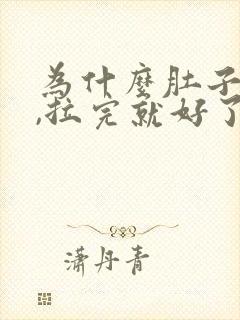 為什麼肚子
,拉完就好了
瀟丹青